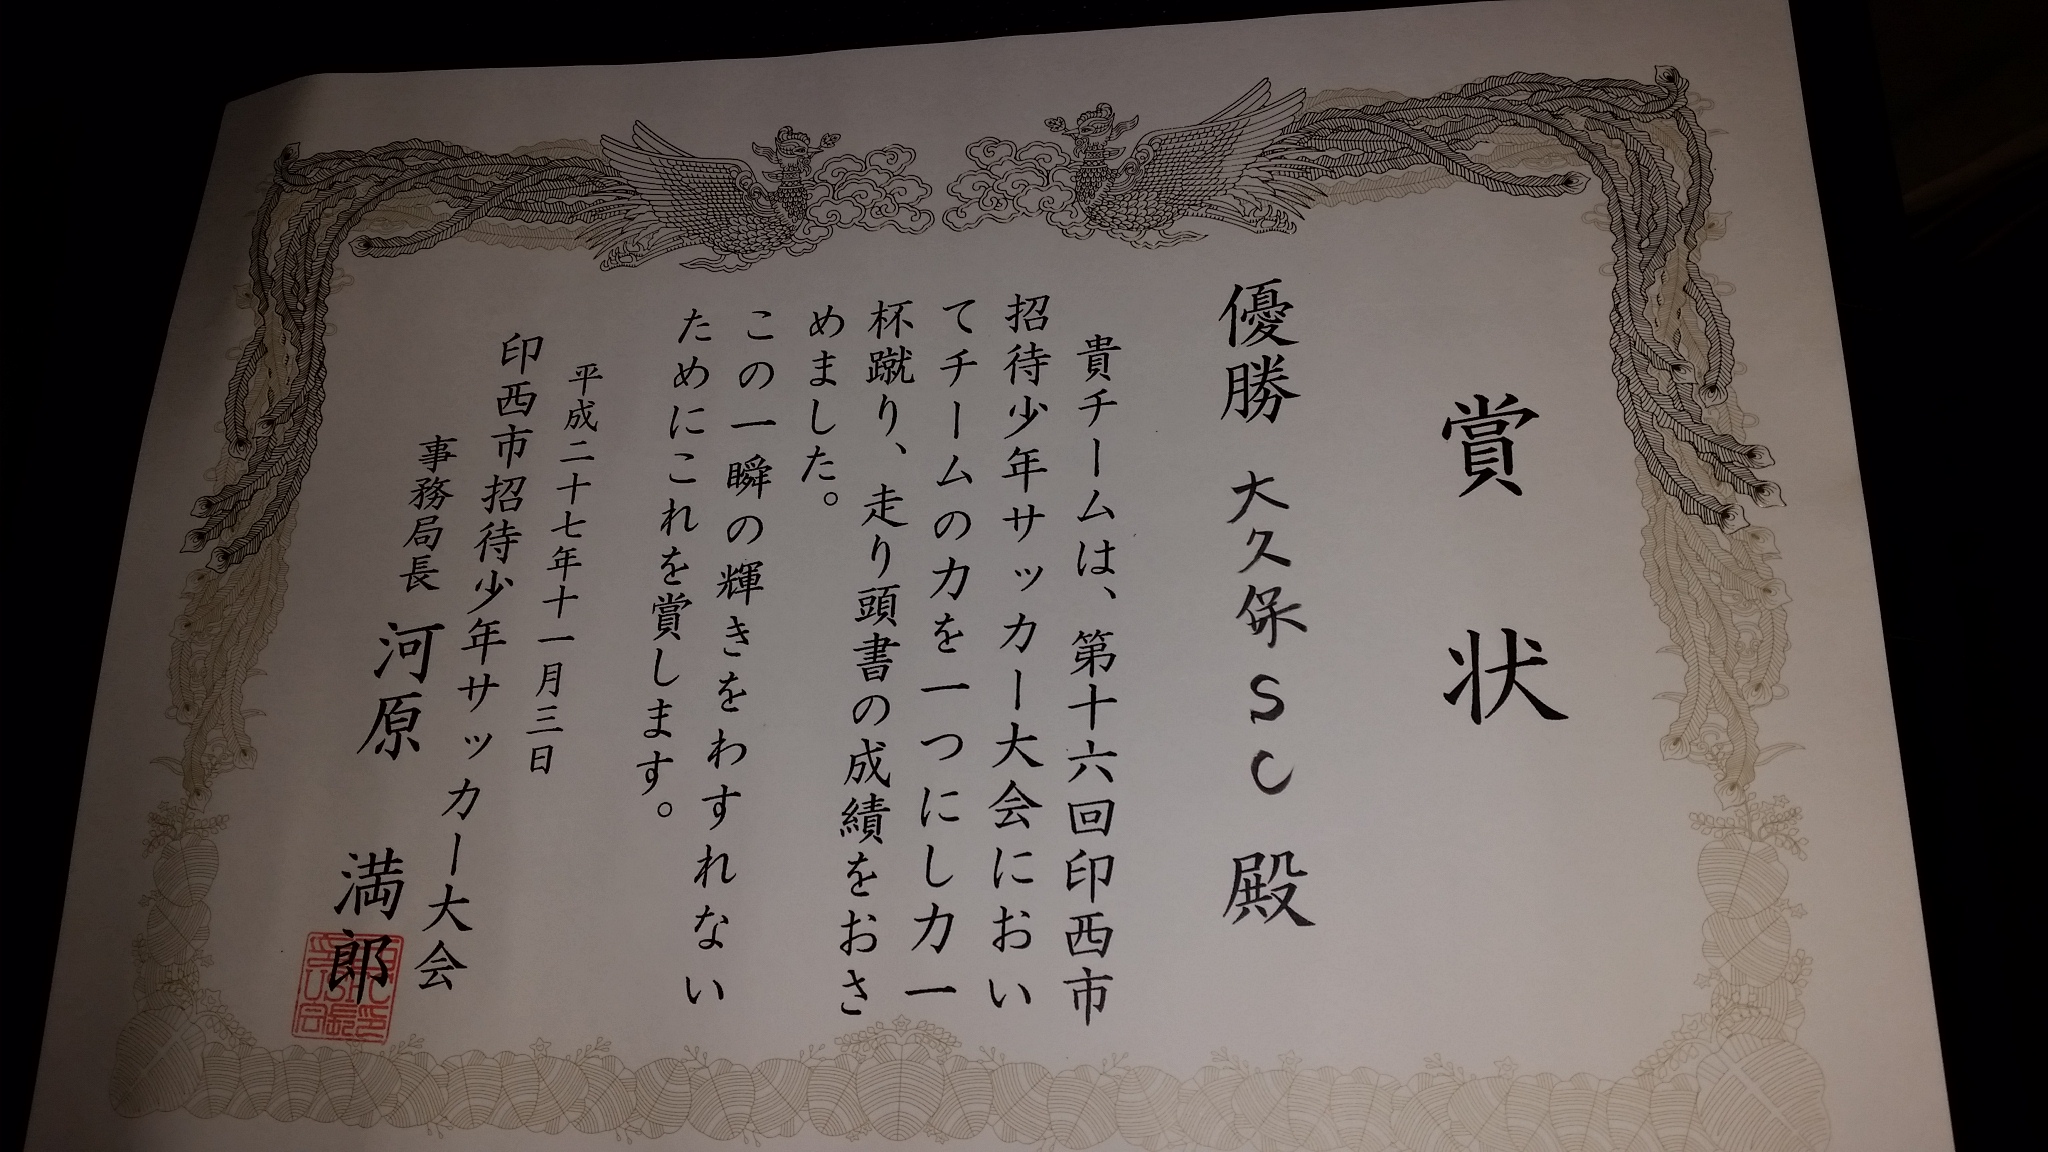 賞状
優勝 大久保SC 殿
貴チームは、第十六回印西市
招待少年サッカー大会におい
てチームの力を一つにし力一
杯蹴り、走り頭書の成績をおさ
めました。
この一瞬の輝きをわすれない
ためにこれを賞します。
平成二十七年十一月三日
印西市招待少年サッカー大会
事務局長 河原 満郎